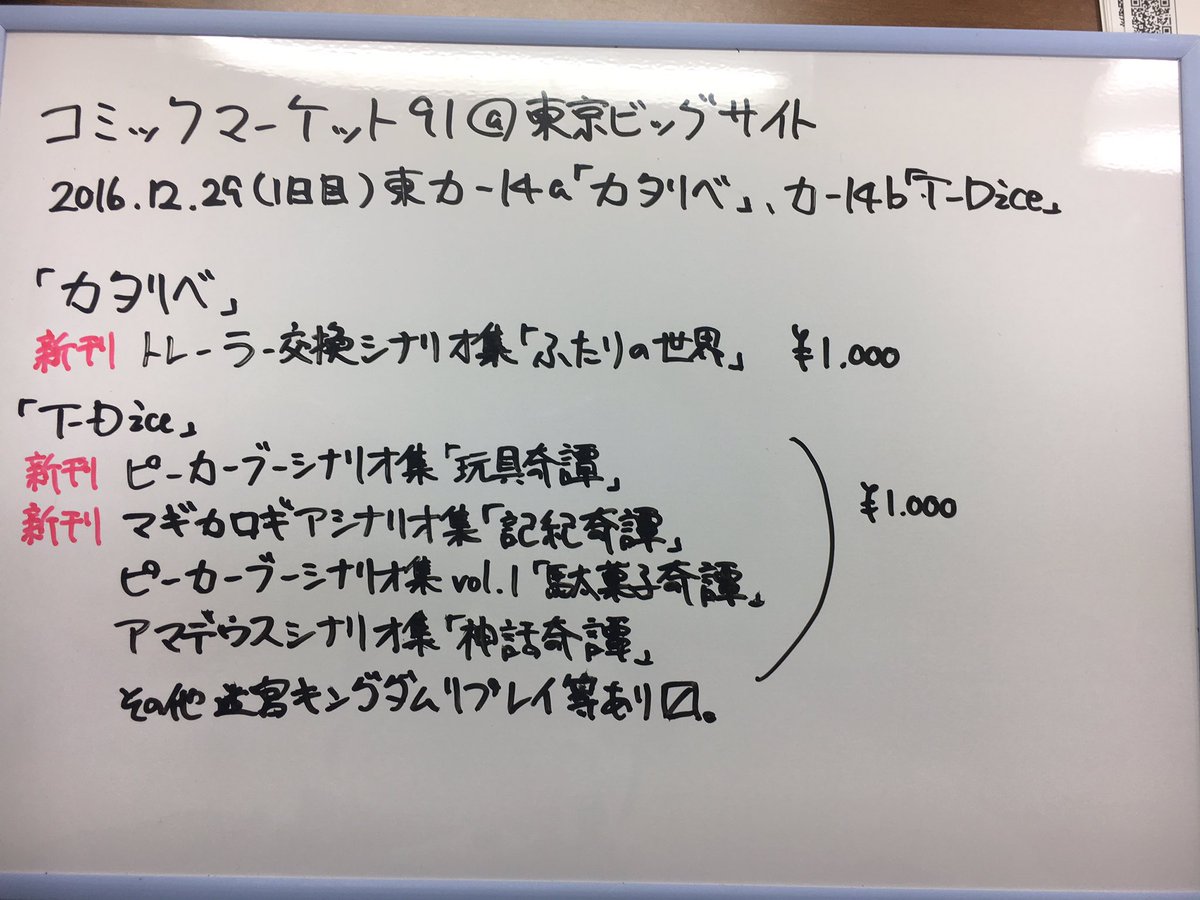 コミックマーケット91@東京ビッグサイト
2016.12.29(1日目)東カ-14a「カタリベ」、カ-14b「T-Dice」
「カタリベ」
新刊 トレーラー交換シナリオ集「ふたりの世界」 ¥1.000
「T-Dice」
新刊 ピーカーブーシナリオ集「玩具奇譚」
新刊 マギカロギアシナリオ集「記紀奇譚」
¥1.000
ピーカーブーシナリオ集vol.1「駄菓子奇譚」
アマデウスシナリオ集「神話奇譚」
その他迷宮キングダムリプレイ等あり〼。